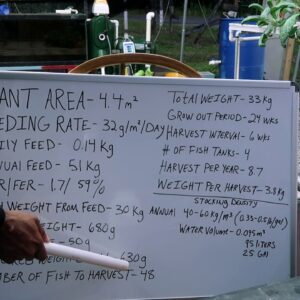 ANT AREA- 4.4m²
EDING RATE- 32g/m²/DAY
LY FEED- 0.14 Kg
NUAL FEED- 51 Kg
R/FER- 1.7/ 59%
WEIGHT FROM FEED- 30 Kg
680g
50g
630g
BER OF FISH TO HARVEST- 48
TOTAL WEIGHT- 33 Kg
GROW OUT PERIOD- 24 WKS
HARVEST INTERVAL- 6 WKS
# OF FISH TANKS- 4
HARVEST PER YEAR- 8.7
WEIGHT PER HARVEST- 3.8 Kg
STOCKING DENSITY
ANNUAL 40-60 Kg/m³ (0.33-0.5 lb/gal)
WATER VOLUME- 0.095m³
95 LITERS
25 GAL